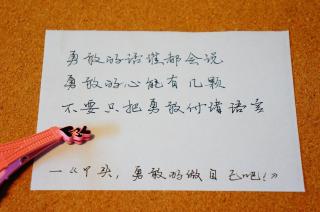 勇敢的话谁都会说
勇敢的心能有几颗
不要只把勇敢付诸语言
—《丫头，勇敢的做自己吧！》